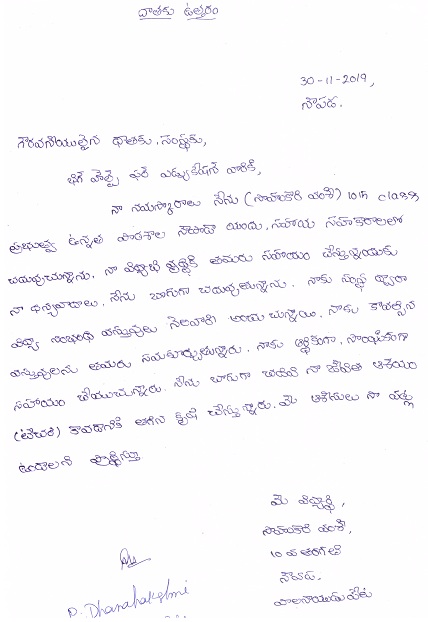 దాతకు ఉత్తరం
30-11-2019,
నౌపడ.
గౌరవనీయులైన దాతకు, సంస్థకు,
బిగ్ హెల్ప్ ఫర్ ఎడ్యుకేషన్ వారికి,
నా నమస్కారాలు నేను (సాహుకారి వంశీ) 10th class
ప్రభుత్వ ఉన్నత పాఠశాల నౌపడా యందు, సహాయ సహకారాలలో
చదువుచున్నాను. నా విద్యాభి వృద్ధికి తమరు సహాయం చేస్తున్నందుకు
నా ధన్యవాదాలు. నేను బాగుగా చదువుతున్నాను. నాకు సంస్థ ద్వారా
విద్యా సంబంధ వస్తువులు నెలవారి అందుచున్నాయి. నాకు కావల్సిన
వస్తువులను తమరు సమకూర్చుతున్నారు. నాకు ఆర్థికంగా,
సహాయం చేయుచున్నారు. నేను బాగుగా చదివి నా జీవిత ఆశయం
(టీచర్) కావడానికి తగిన కృషి చేస్తున్నారు. మీ ఆశీసులు నా పట్ల
ఉండాలని ప్రార్థిస్తూ
మీ విద్యార్థి,
సాహుకారి వంశీ,
10 వ తరగతి
నౌపడ.
పాలనాయుడు పేట
D. Dhanalakshmi